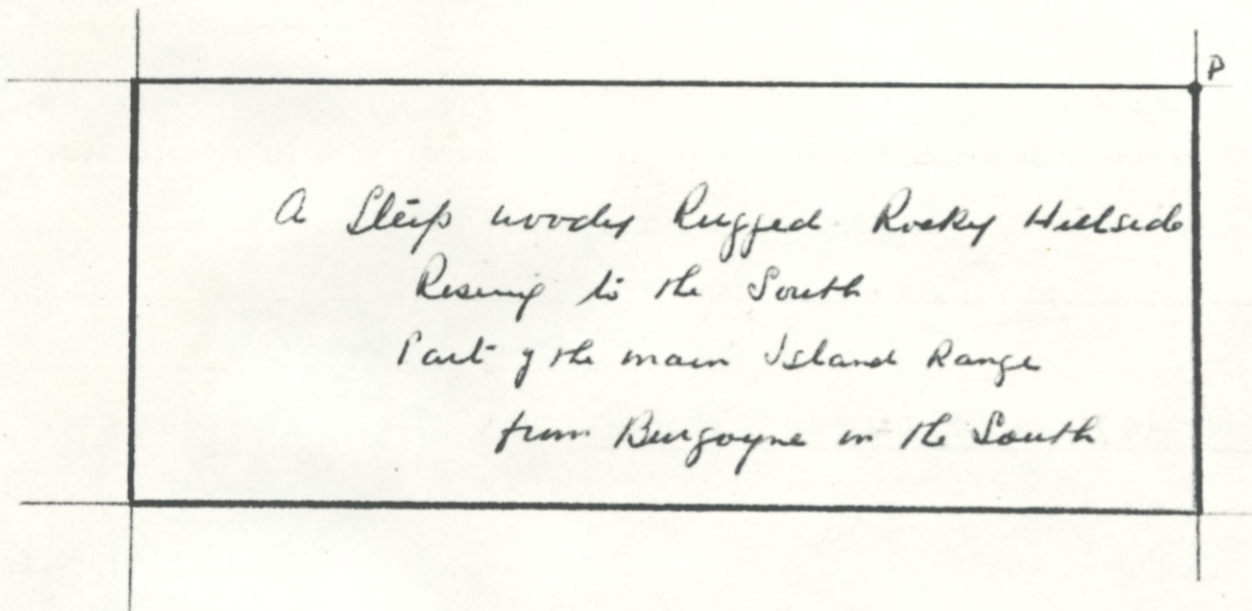 P
A Steep woody Rugged Rocky Hillside
Rising to the South
Part of the main Island Range
from Burgoyne in the South